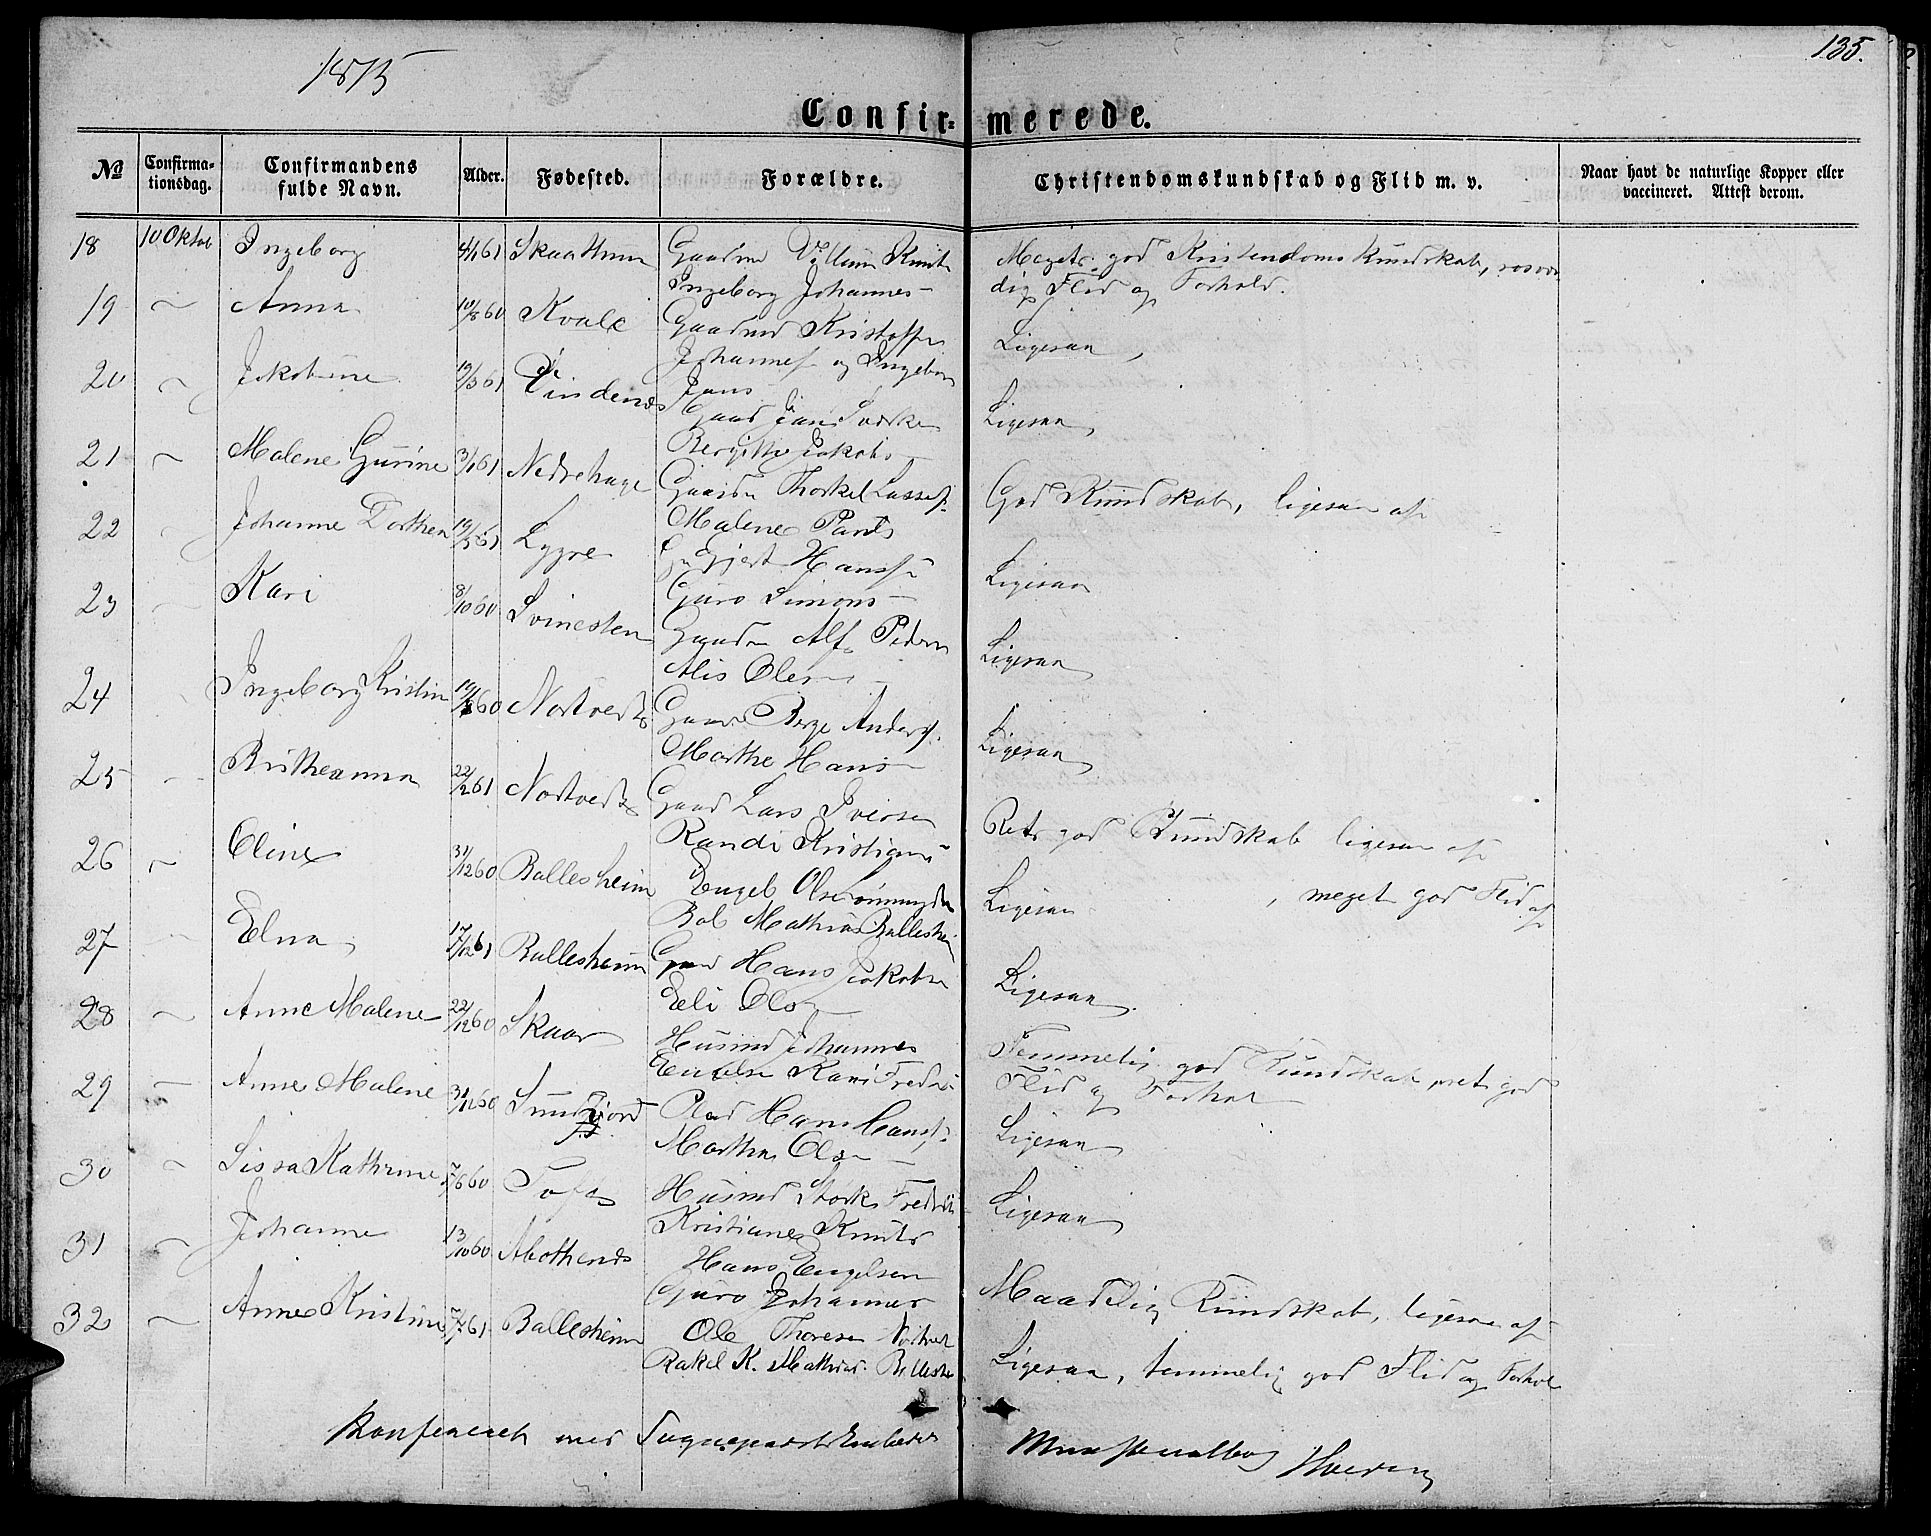 1875
135.
Confir- merede.
No
Confirma-
tionsdag.
Confirmandens
fulde Navn.
Alder.
Fødested.
Forældre.
Christendomskundskab og Flid m. v.
Naar havt de naturlige Kopper eller
vaccineret. Attest derom.
18 10 Oktob Ingeborg 4/1 61 Gaardm Villum Knuts Meget god Kristendoms Kundskab, rosvær
Ingeborg Johannes dig Flid og Forhold.
19 Anna 10/8 60 Kvale Gaardmd Kristoffer Ligesaa
Johannes og Ingeborg
20 Jakobine 19/3 61 Vindenes Jans
Gaard Jan Ligesaa
Bergitte Jakobs
21 Malene Gurine 3/1 61 Nedrehage Gaardm Thorkel Lasses. God Kundskab, ligesaa af
Malene Pauls
22 Johanne Dorthea 19/5 61 Lygre Gjert Hans Ligesaa
Guro Simons
23 Kari 8/10 60 Svinesten Gaardm Alf Peders Ligesaa
Alis Ols
24 Ingeborg Kristin 19/8 60 Nortvedt Gaard Berge Anders. Ligesaa
Marthe Hans
25 Britheanna 22/2 61 Nortvedt Gaard Lars Iversen Ret god Kundskab ligesaa af
Randi Kristians
26 Eline 31/12 60 Ballesheim Engel Ols Ligesaa, meget god Flid af
Bol Mathias Ballesheim
27 Elna 17/12 61 Ballesheim Gaard Hans Jakobs Ligesaa
Eli Ols
28 Anne Malene 22/12 60 Skaar Husmd Johannes Temmelig god Kundskab, ret god
Kari Fredr Flid og Forhol
29 Anne Malene 31/11 60 Sundfjord Plad Hans Hans Ligesaa
Martha Ols
30 Lissa Kathrine 7/6 60 Tofte Husmd Størk Fredrik Ligesaa
Kristiane Knuts
31 Johanne 13/10 60 Hans Engelsen Maadelig Kundskab, ligesaa af
Guro Johannes
32 Anne Kristine 7/2 61 Ballesheim Ole Thoresen Nortvet Ligesaa, temmelig god Flid og Forhol
Rakel K. Mathias. Ballesh
Konfereret med